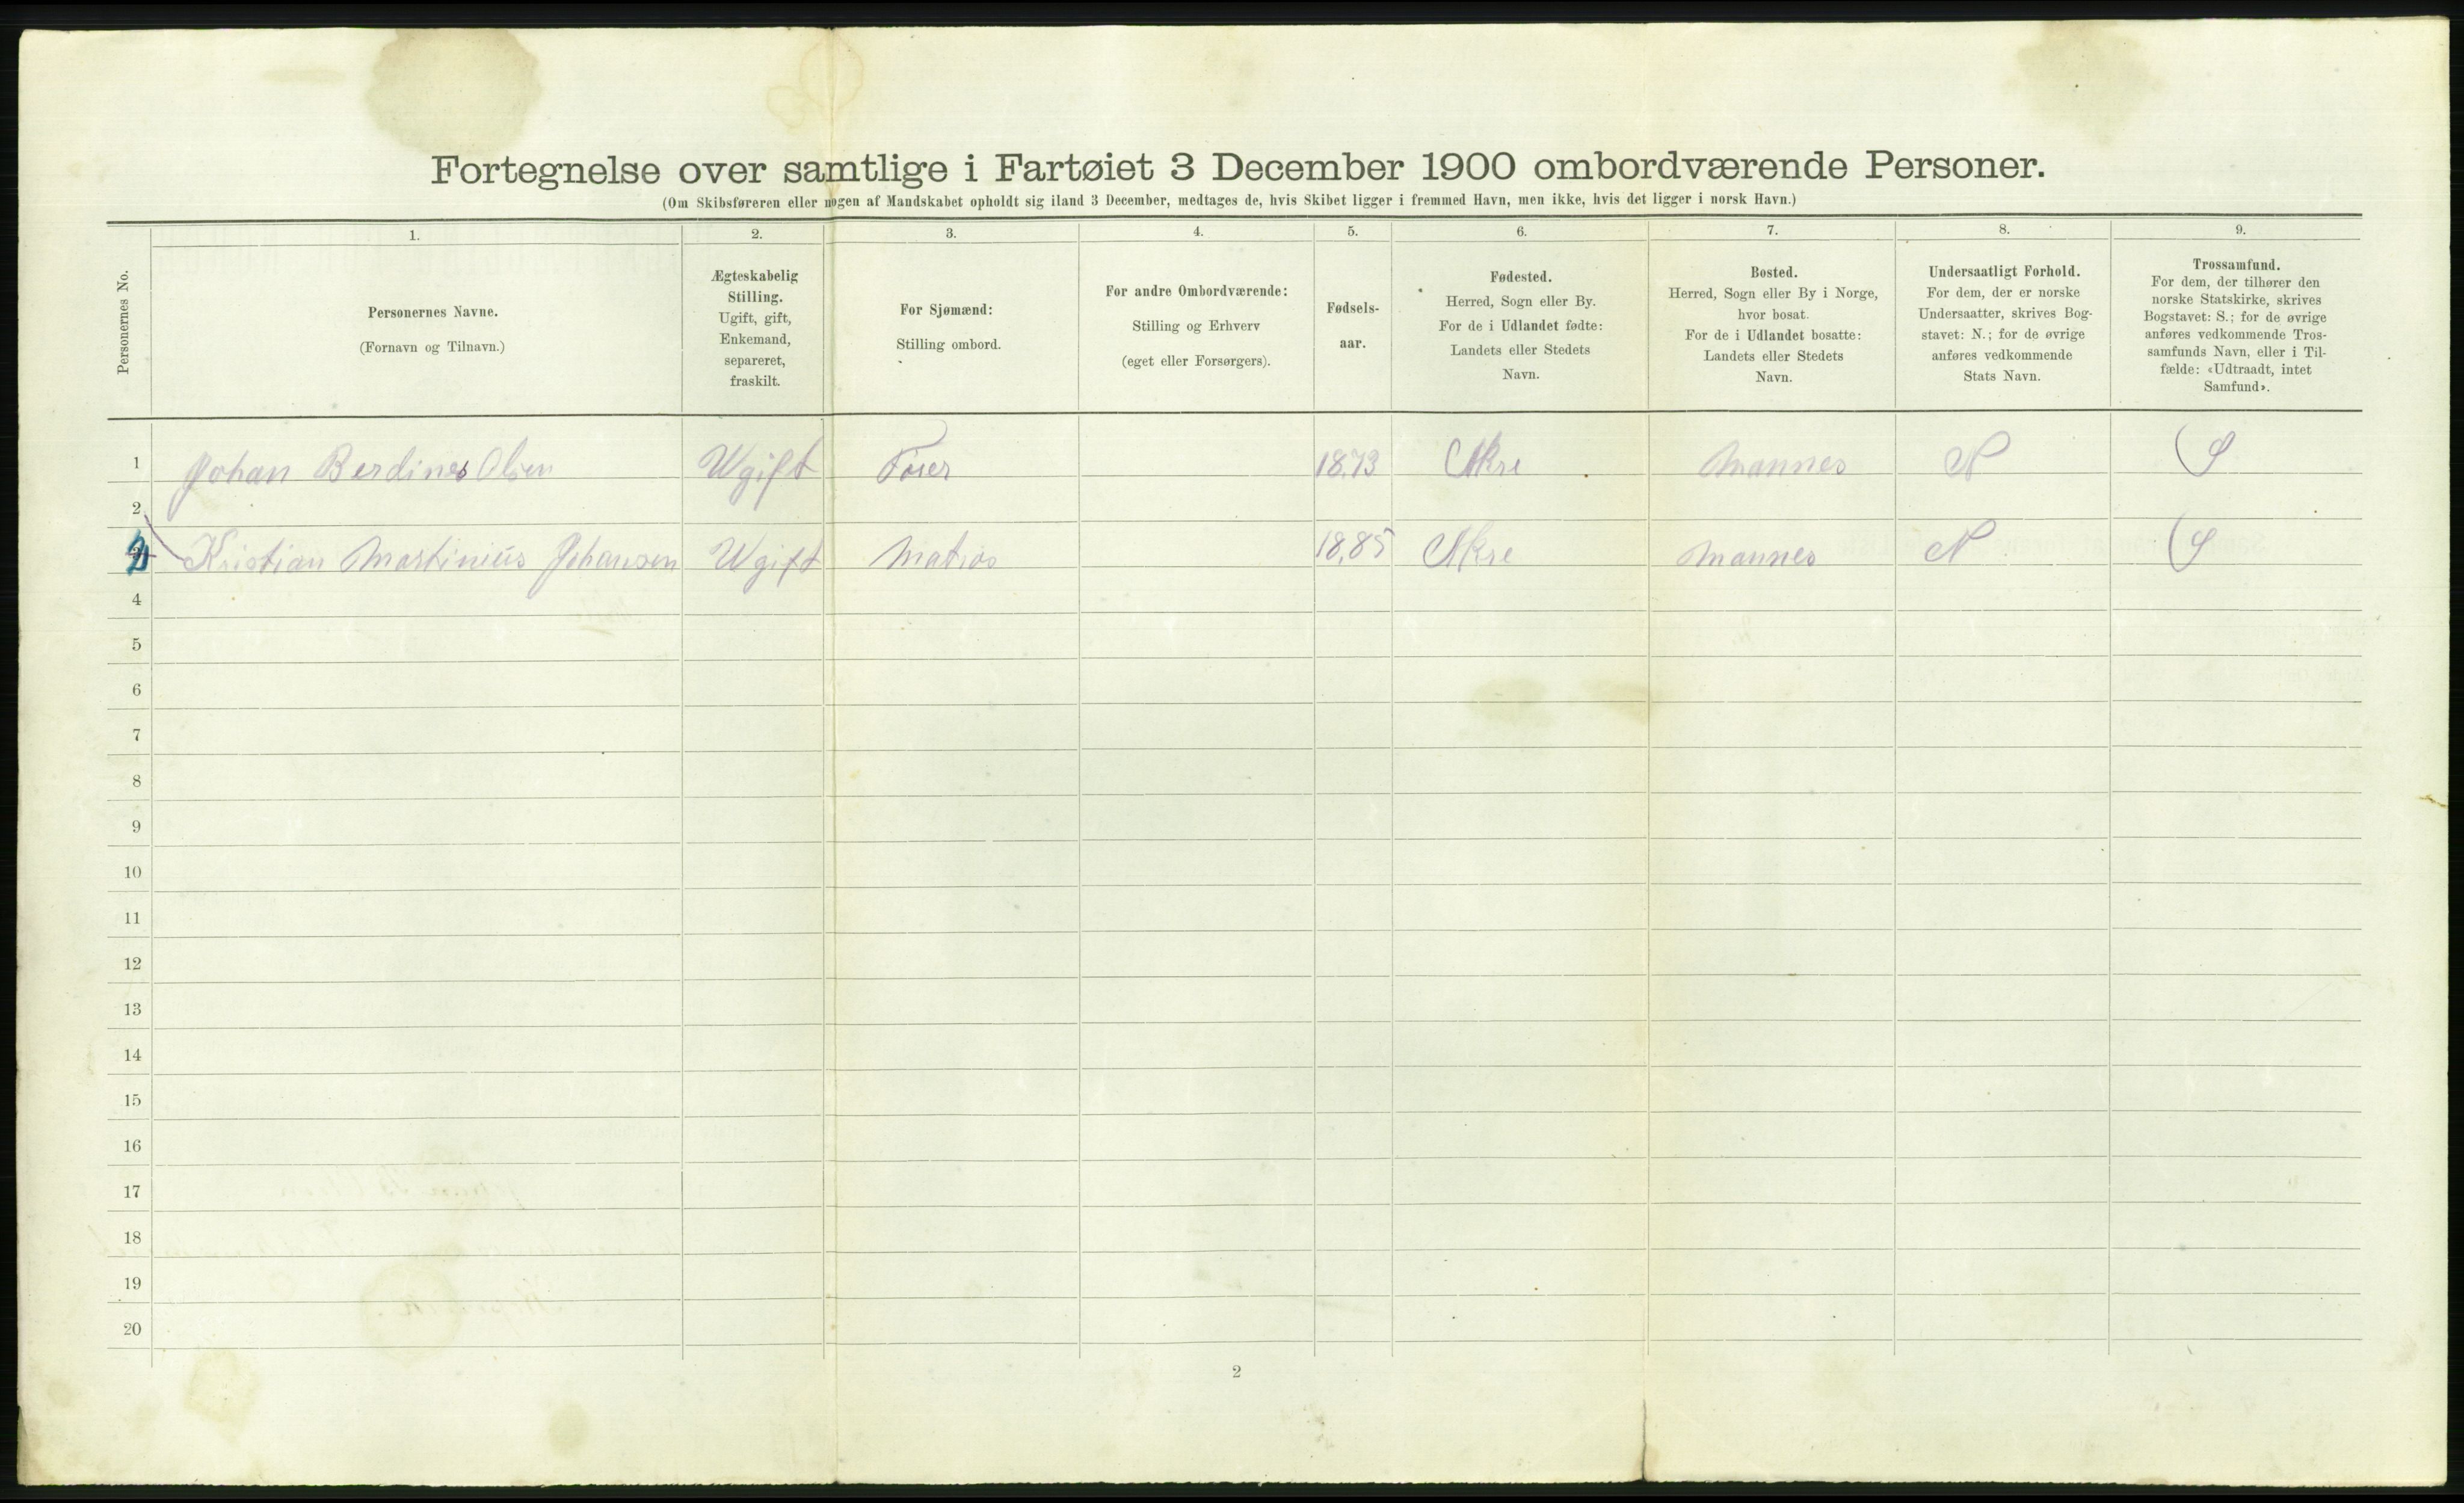 Fortegnelse over samtlige i Fartøiet 3 December 1900 ombordværende Personer.
(Om Skibsføreren eller nogen af Mandskabet opholdt sig iland 3 December, medtages de, hvis Skibet ligger i fremmed Havn, men ikke, hvis det ligger i norsk Havn.)
Personernes No.
1.
Personernes Navne.
(Fornavn og Tilnavn.)
2.
Ægteskabelig
Stilling.
Ugift, gift,
Enkemand,
separeret,
fraskilt.
3.
For Sjømænd:
Stilling ombord.
4.
For andre Ombordværende:
Stilling og Erhverv
(eget eller Forsørgers).
5.
Fødsels-
aar.
6.
Fødested.
Herred, Sogn eller By.
For de i Udlandet fødte:
Landets eller Stedets
Navn.
7.
Bosted.
Herred, Sogn eller By i Norge,
hvor bosat.
For de i Udlandet bosatte:
Landets eller Stedets
Navn.
8.
Undersaatligt Forhold.
For dem, der er norske
Undersaatter, skrives Bog-
stavet: N.; for de øvrige
anføres vedkommende
Stats Navn.
9.
Trossamfund.
For dem, der tilhører den
norske Statskirke, skrives
Bogstavet: S.; for de øvrige
anføres vedkommende Tros-
samfunds Navn, eller i Til-
fælde: «Udtraadt, intet
Samfund».
1 Johan Berdines Olsen Ugift Fører 18.73 Akre Mannes N S
2
2 Kristian Martinius Johansen Ugift Matros 18.85 Akre Mannes N S
4
5
6
7
8
9
10
11
12
13
14
15
16
17
18
19
20
2